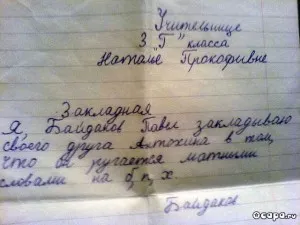 Учительнице
3 "Г" класса
Наталье Прокофьевне
Закладная
Я, Байдаков Павел закладываю
своего друга Алтохина в том,
что он ругается матными
словами на б, п, х.
Байдаков
ocapa.ru